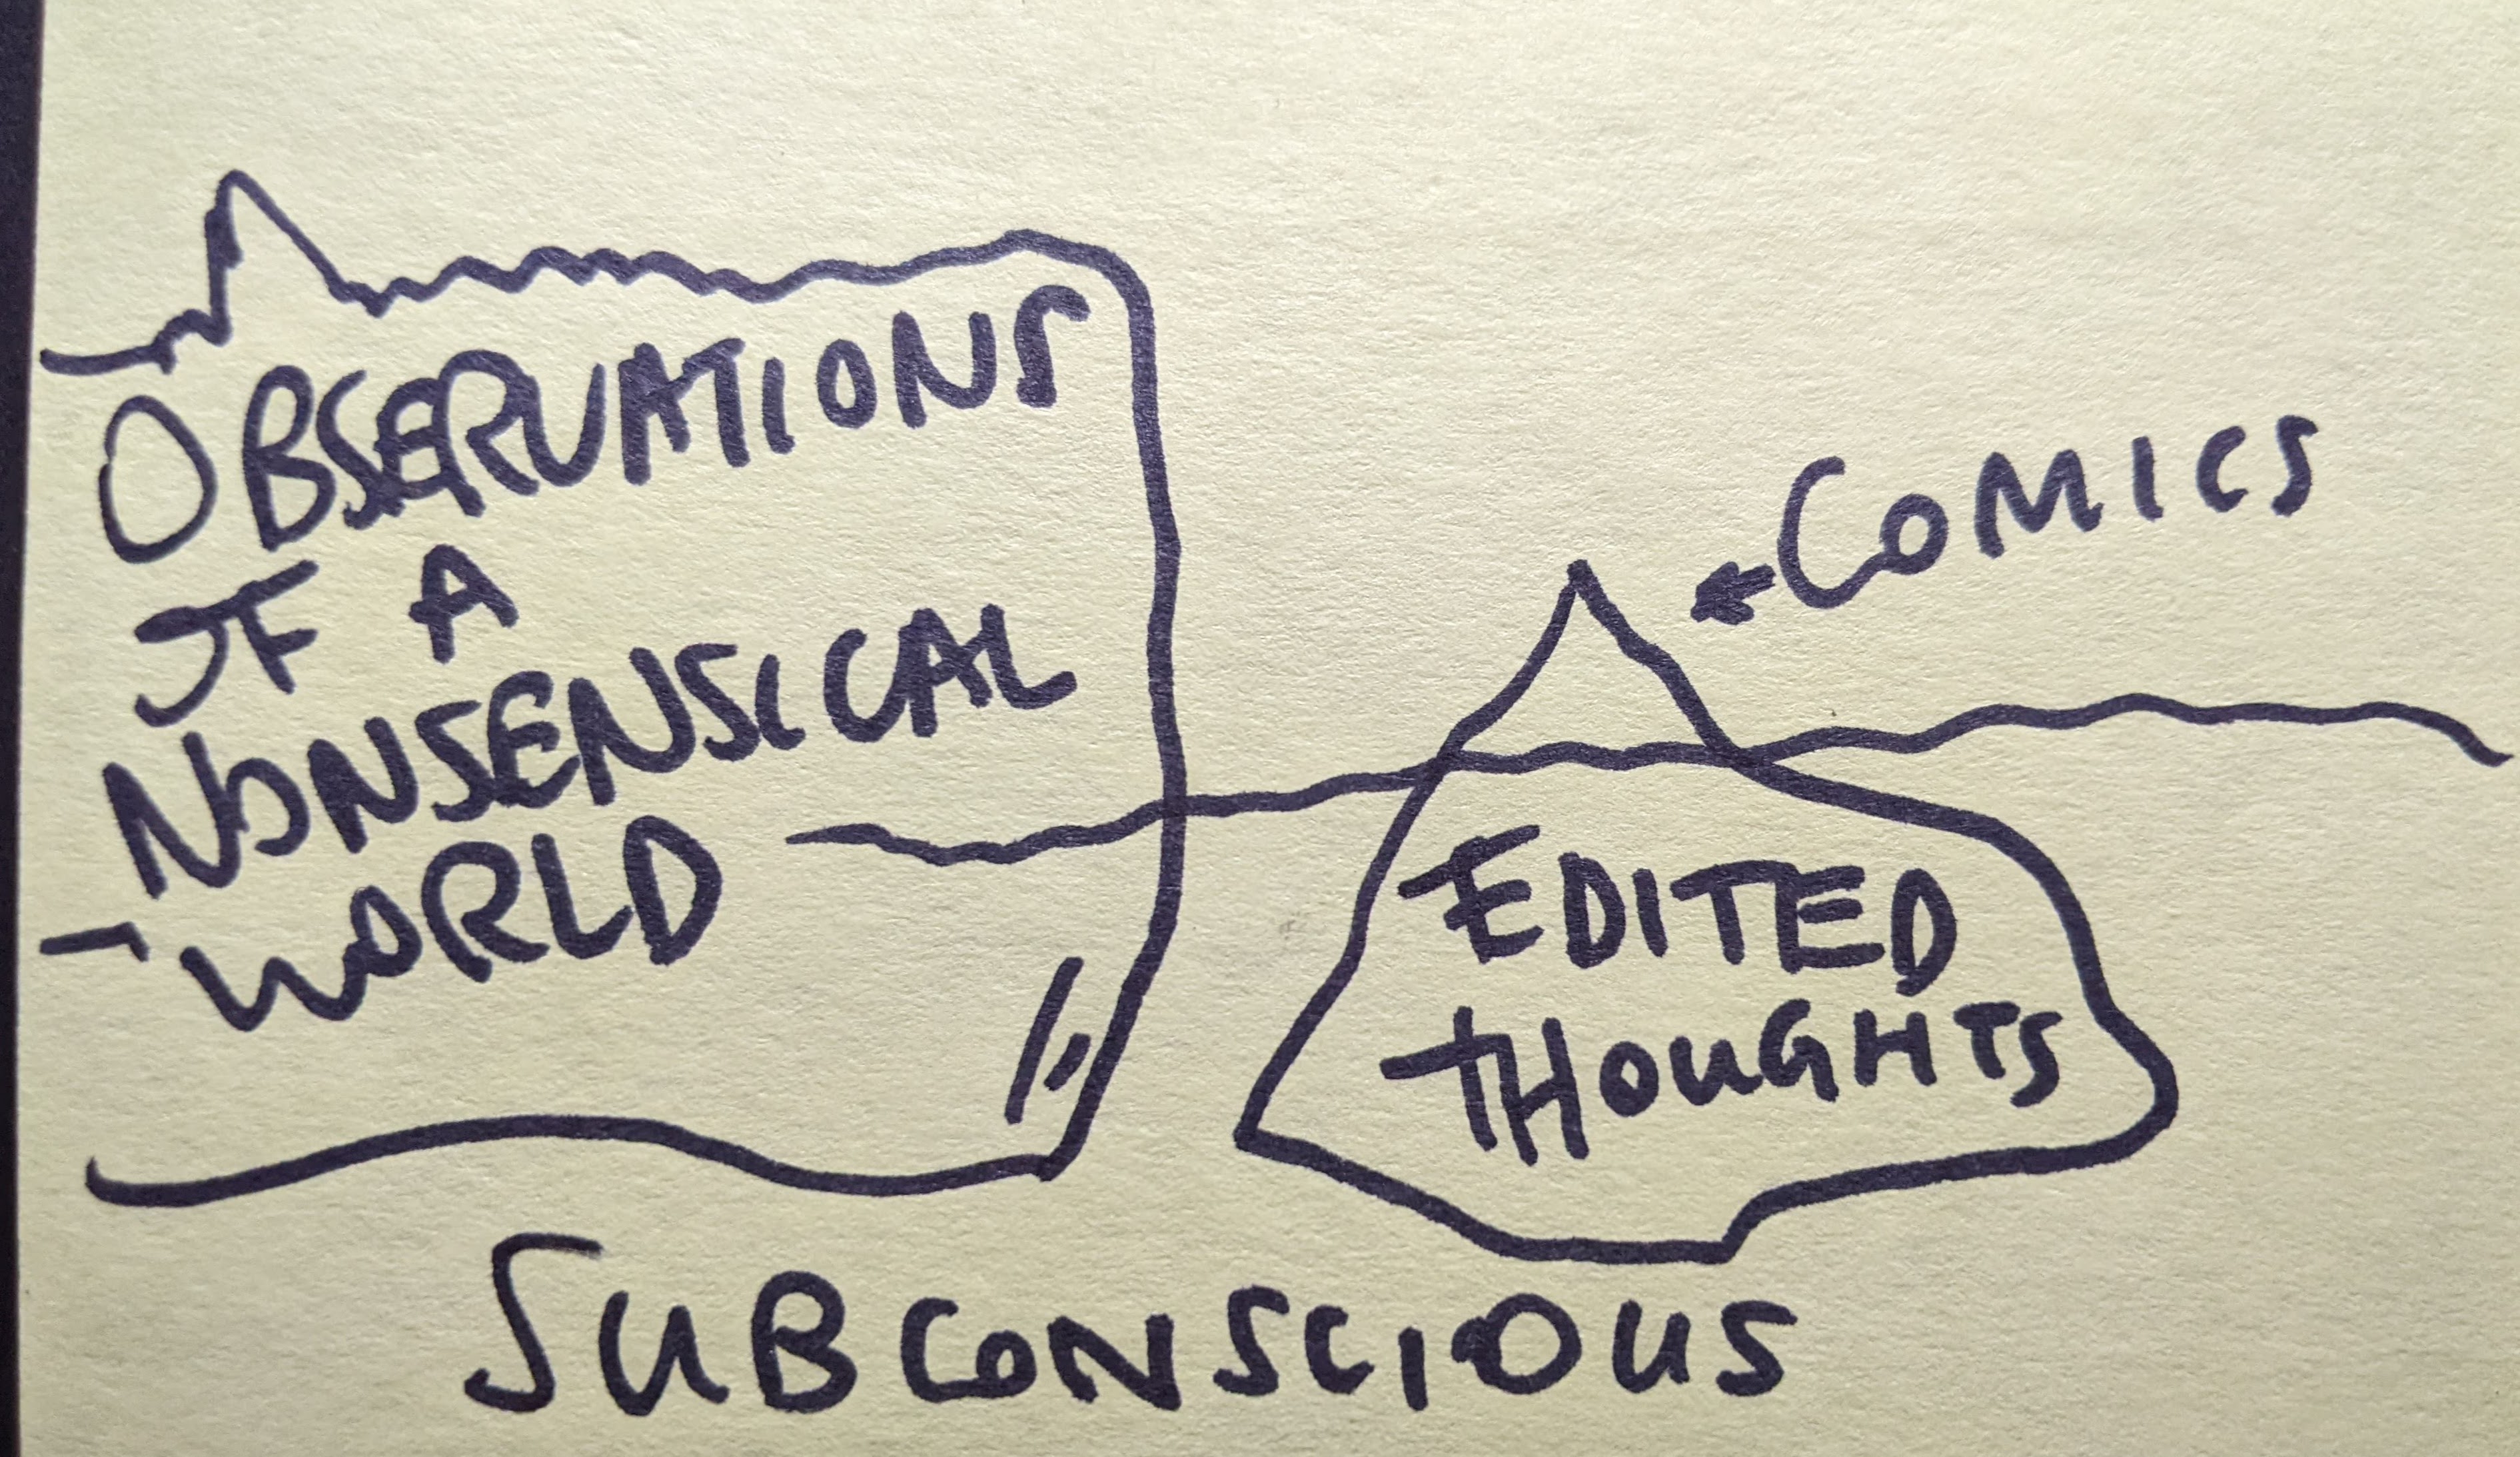 OBSERVATIONS
OF A
NONSENSICAL
WORLD
COMICS
EDITED
THOUGHTS
SUBCONSCIOUS